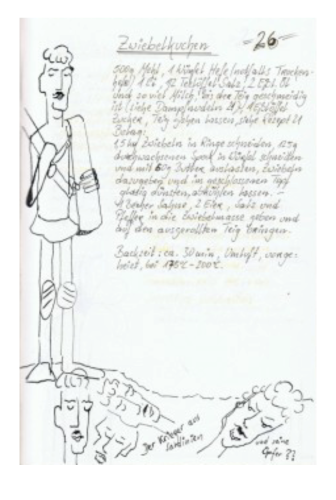 Zwiebelkuchen
=26=
500g Mehl, 1 Würfel Hefe (notfalls Trocken-
hefe) 1 Ei, 1/2 Teelöffel Salz, 2 Eßl. Öl
und so viel Milch, bis der Teig geschmeidig
ist (siehe Dampfnudeln 21) 1 Eßlöffel
Zucker, Teig gehen lassen, siehe Rezept 21
Belag:
1,5 kg Zwiebeln in Ringe schneiden,
durchwachsenen Speck in Würfel schneiden
und mit 60g Butter auslassen, Zwiebeln
dazugeben und im geschlossenen Topf
glasig dünsten, abkühlen lassen.
1 Becher Sahne, 2 Eier, Salz und
Pfeffer in die Zwiebelmasse geben und
auf den ausgerollten Teig bringen.
Backzeit: ca. 30 min, Umluft, vorge-
heizt, bei 175°C-200°C.
Der Krieger aus
Sardinien
und seine
Opfer ??